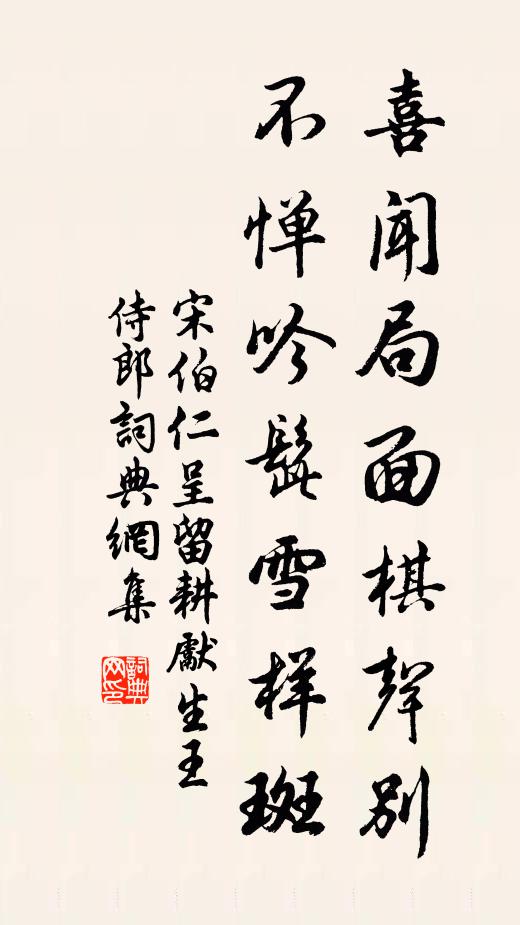 喜闻局面棋聲别
不惮吟髭雪样斑
宋伯仁呈留耕獻生王
侍郎詞典網集
詞典
网印